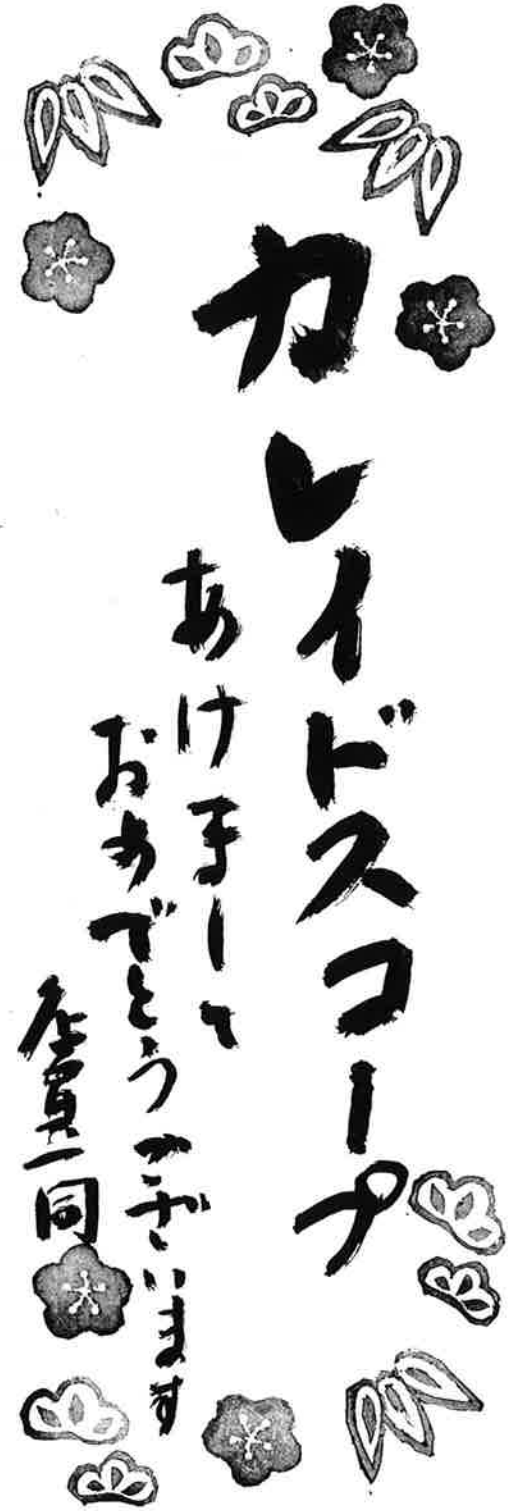 カレイドスコープ
あけまして
おめでとうございます
店員一同